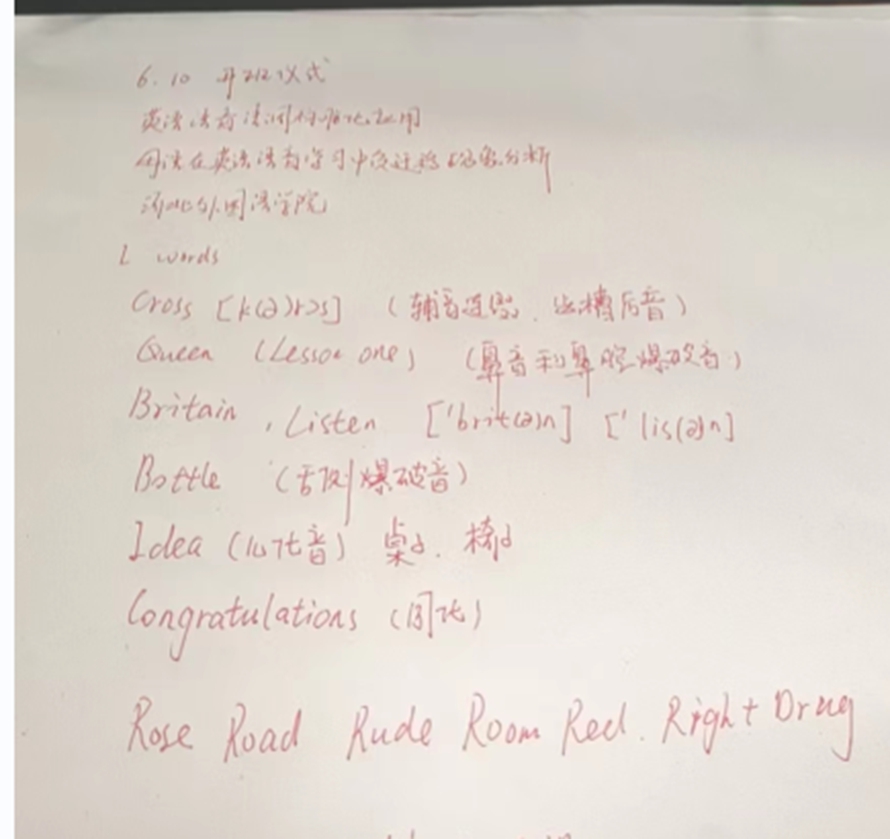 6.10 开班仪式
英语语音语调标准化运用
母语在英语语音学习中负迁移现象分析
外国语学院
1 words
Cross [k(ə)rɔs] (辅音连缀. 齿槽后音)
Queen (Lesson one) (鼻音和鼻腔爆破音)
Britain , Listen ['brit(ə)n] ['lis(ə)n]
Bottle (舌侧爆破音)
Idea (儿化音) 桌d. 椅d
Congratulations (同化)
Rose Road Rude Room Red. Right Drug